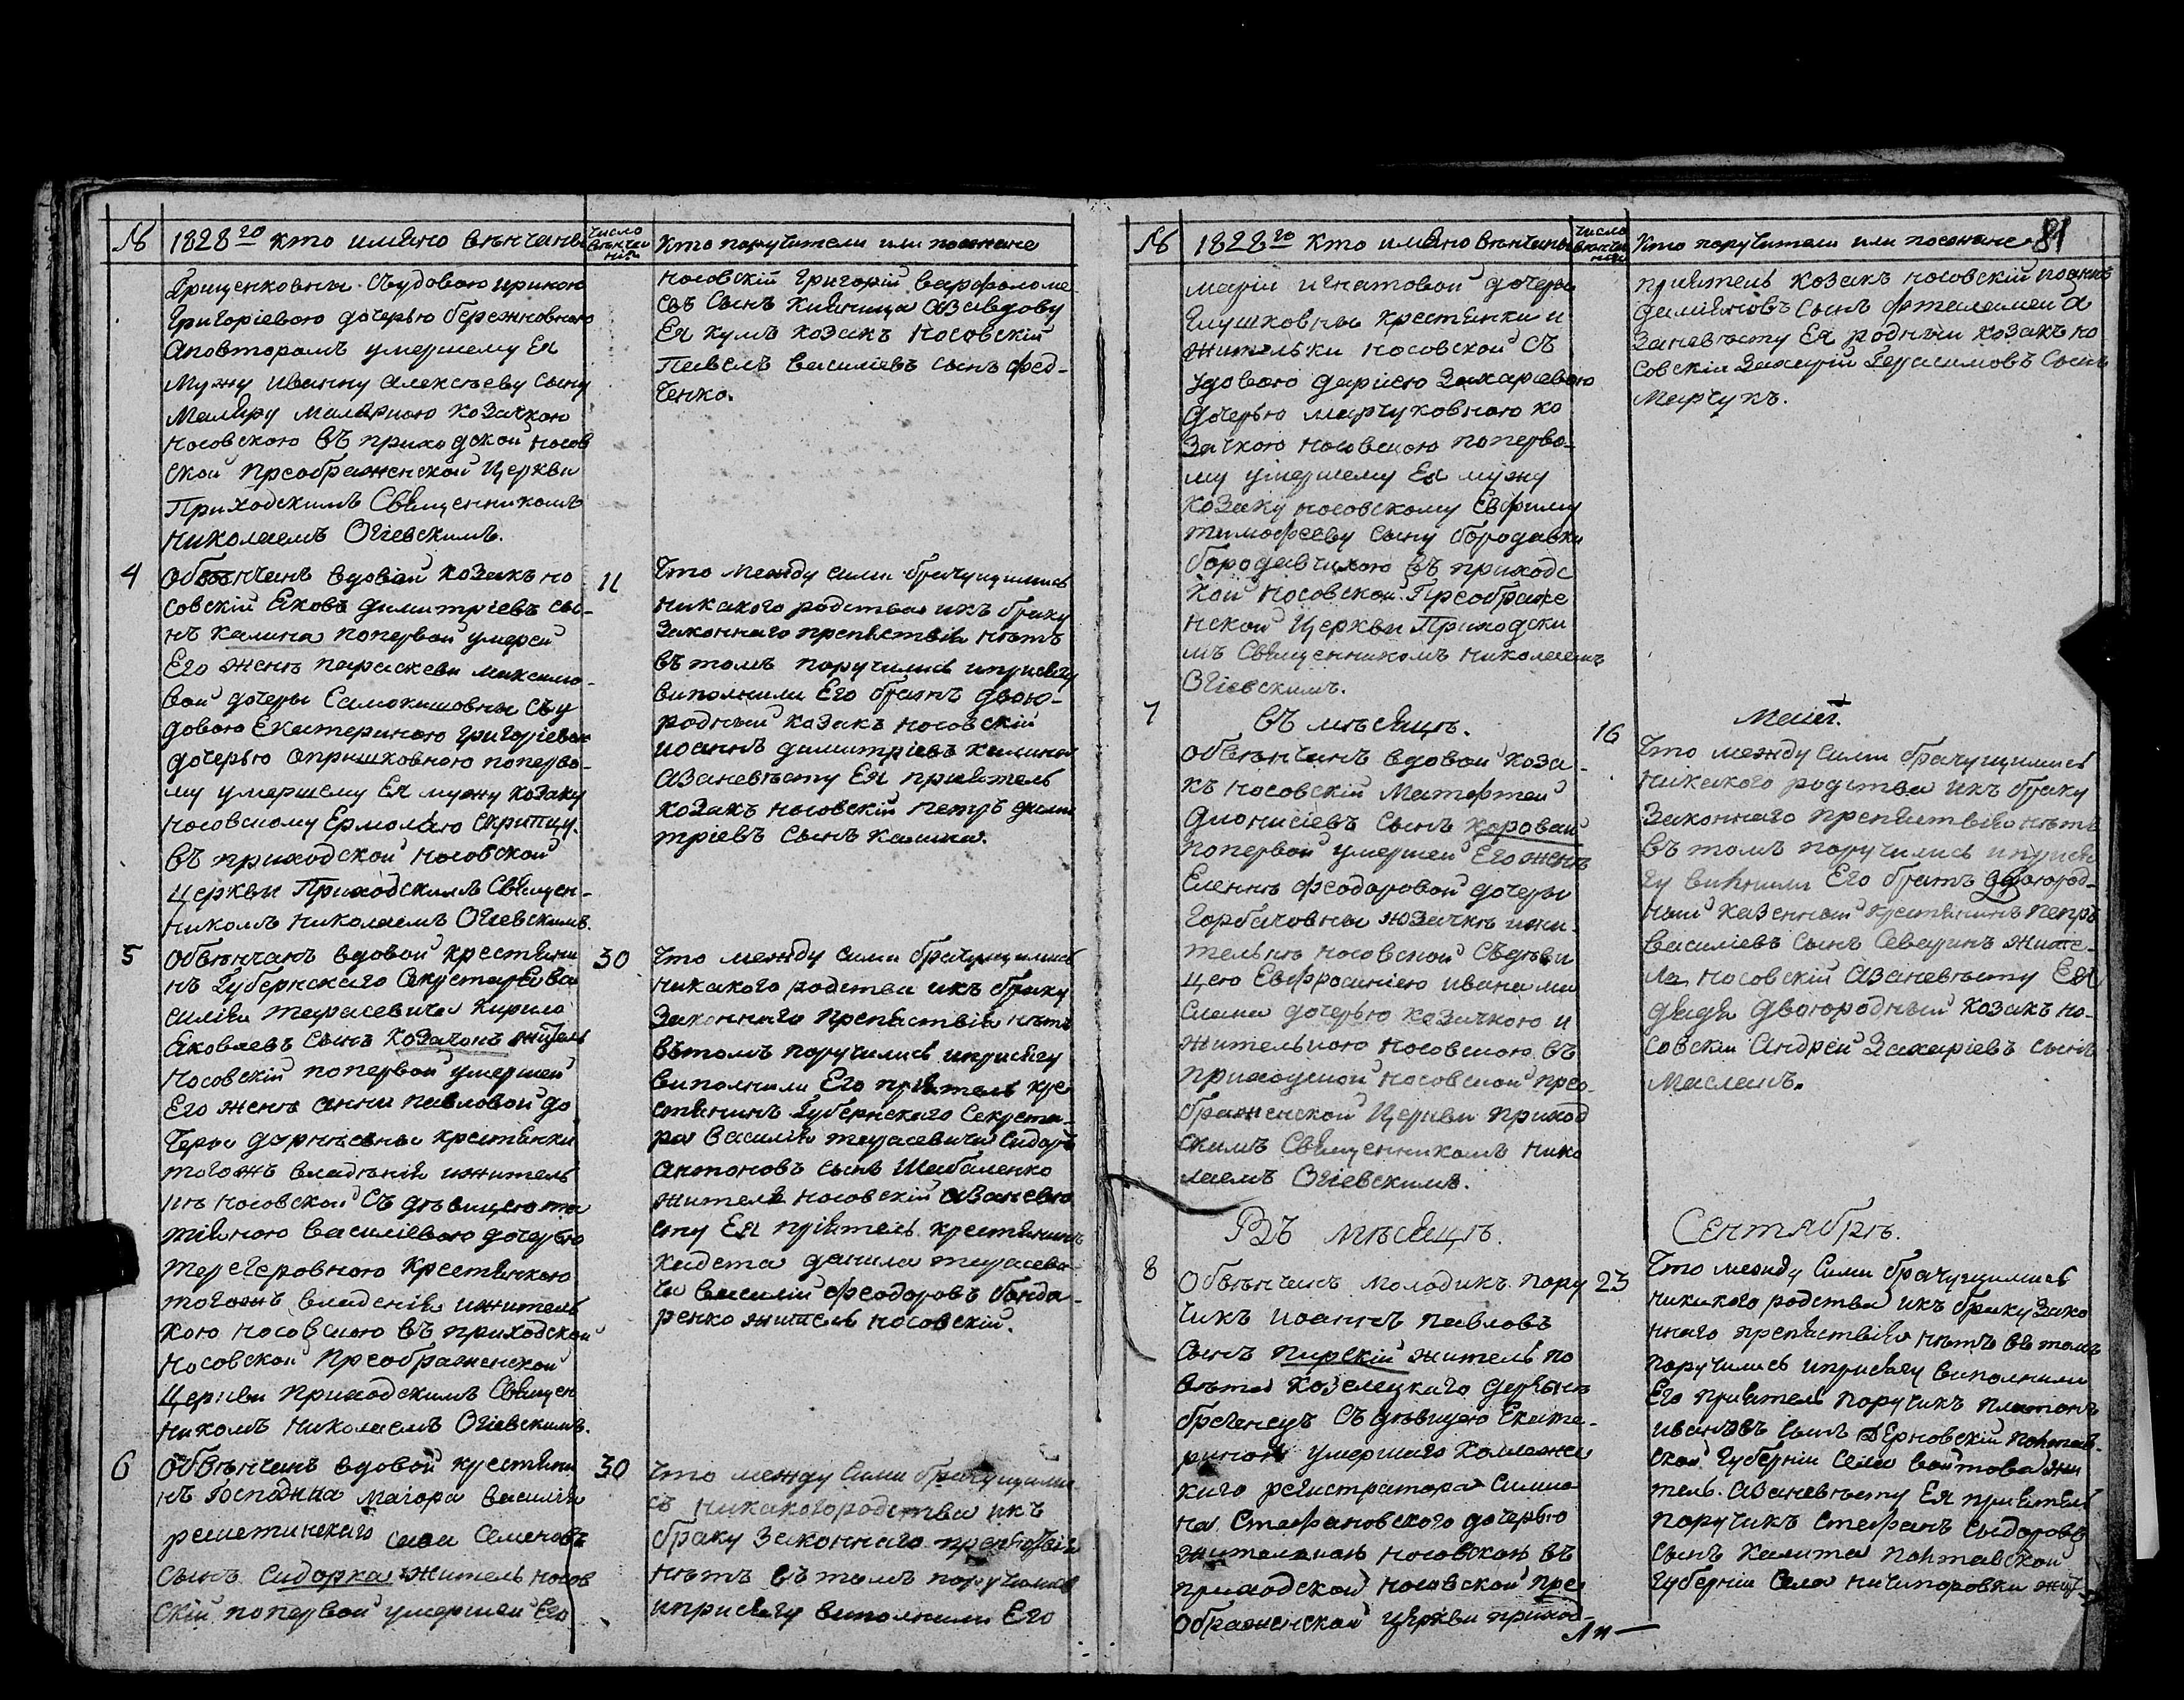 №
1828го кто имяно венчаны
число венчания
кто поручители или поезжане
Грищенковны. Съудовою ириною
Григоріевою дочерью бережновною
Аповторомъ умершему Ея
Мужу иванну алексѣеву сыну
Маляру малярною козачкою
носовскою въ приходской носов
ской преображенской Церкви
Приходскимъ Священникомъ
Николаемъ Огіевскимъ.
носовскій григорій варфоломе
евъ сынъ Авдову
Ея кумъ козакъ носовскій
Павелъ василіевъ сынъ фед-
ченко.
4
Обвѣнчанъ вдовай козакъ но
совскій Яковъ димитріевъ сы-
нъ калина попервой умершей
Его женѣ параскеви максимо-
вой дочери Самокишовны Съу
довою Екатериною григоріевою
дочерью опришковною поперво-
му умершему Ея мужу козаку
носовскому Ермолаю Скрипцу.
въ приходской носовской
церкви Приходскимъ Священ-
никомъ николаемъ Огіевскимъ.
11
Что между сими брачущимись
никакого родства ихъ браку
законнаго препятствія нѣтъ
въ томъ поручились иприсягу
виполнили Его братъ двою-
родный козакъ носовскій
иоаннъ димитріевъ калина
Азаневѣсту Ея пріятель
козакъ носовскій петръ дими
тріевъ сынъ калина.
5
Обвѣнчанъ вдовой крестяни
нъ Губернскаго Секустаря ва
силія тарасевича Кирило
Яковлевъ сынъ козачокъ житель
носовскій попервой умершей
Его женѣ анни павловой до
чери крестянки
тогожъ владѣнія ижитель
ки носовской Съ дѣвицею та
тіяною василіевою дочерью
терещеровною крестянкою
тогожъ владенія ижитель
кою носовскою въ приходской
носовской Преображенской
Церкви Приходскимъ Священ
никомъ николаемъ Огіевскимъ.
30
Что между сими брачущимись
никакого родства ихъ браку
Законнаго препятствія нѣтъ
Вътомъ поручились иприсягу
виполнили Его пріятель кре
стянинъ Губернскаго Секрета-
ра василія тарасевича Сидоръ
антоновъ сынъ Шабаленко
житель носовскій азаневѣ
сту Ея пріятель крестянинъ
кадета данила тарасеви-
ча василій феодоровъ бонда-
ренко житель носовскій.
6
Обвѣнчанъ вдовой крестяни
нъ Господина маіора василія
решетинскаго сава Семеновъ
сынъ Сидорка житель носов
скій попервой умершей Его
30
Что между сими брачущими
сь никакогородства ихъ
браку Законнаго препятствія
нѣтъ въ томъ поручились
иприсягу виполнили Его
№
1828го кто имяно вѣнчаны
число вѣнчания
кто поручители или поезжане
81
маріи игнатовой дочери
Глушковны крестянки и
жительки носовской Съ
удовою даріею Захаріевою
дочерью марчуковною ко
зачкою носовскою поперво-
му умершему Ея мужу
козаку носовскому Евфиму
тимофееву сыну бородавки
бородавчихою въ приходс
кой носовской Преображе
нской Церкви Приходски
мъ Священникомъ николаемъ
Огіевскимъ.
пріятель козакъ носовскій иоаннъ
даміяновъ сынъ а
заневѣсту Ея родный козакъ но
совскій Захарій Герасимовъ сынъ
Марчукъ.
7
Въ мѣсяцѣ.
Маіи.
Обвѣнчанъ вдовой коза-
къ носовскій Матфей
дионисіевъ сынъ коровай
попервой умершей Его женѣ
Еленѣ феодоровой дочери
Горбачовны козачкѣ ижи-
телькѣ носовской Съдѣви
цею Евфросиніею ивана ма
слана дочерью козачкою и
жителькою носовскою въ
приходской носовской прео-
браженской Церкви приход
скимъ Священникомъ нико
лаемъ Огіевскимъ.
16
Что между сими брачущимись
никакого родства ихъ браку
Законнаго препятствія нѣтъ
въ томъ поручились иприся
гу випнили Его братъ двоюрод-
ный казенный крестянинъ петръ
василіевъ сынъ Северинъ жите-
ль носовскій азаневѣсту Ея
дядя двоюродный козакъ но-
совскій Андрей Захаріевъ сынъ
Масланъ.
Въ мѣсяцѣ.
Сентябрѣ.
8
Обвѣнчанъ молодикъ пору
чикъ иоаннъ павловъ
сынъ Пирскій житель по
вѣта козелецкаго деревнѣ
съ дѣвицею Екате-
риною умершаго коллежс
каго регистратора Симио
на Стефановского дочерью
жителькою носовскою въ
приходской носовской пре
ображенской церкви приход-
23
Что между сими брачущимись
никакого родства ихъ браку Зако
ннаго препятствія нѣтъ втомъ
поручились иприсягу виполнили
Его пріятель поручикъ платонъ
ивановъ сынъ полтав
ской Губерніи села войтова жи
тель. азаневѣсту Ея пріятель
поручикъ стефанъ сидоровъ
сынъ калита полтавской
Губерніи Села ничипоровки жит